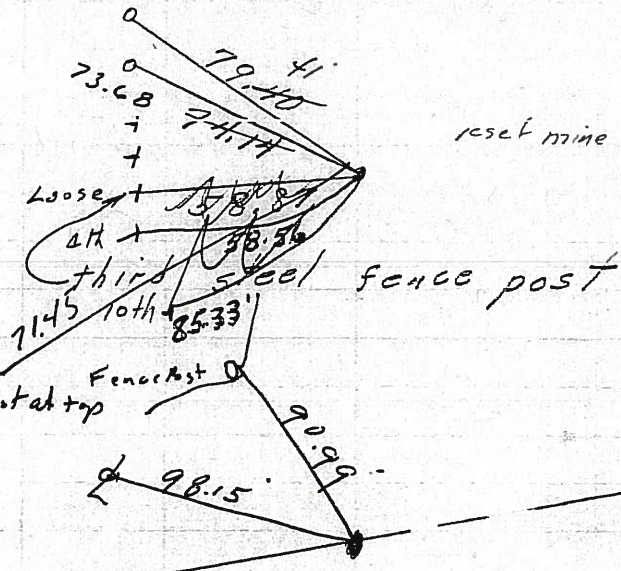 41
79.40
73.68
74.14
reset mine
Loose
4th
58.56
third steel fence post
71.45
10th
85.33'
Fence Post
st at top
90.99
98.15'